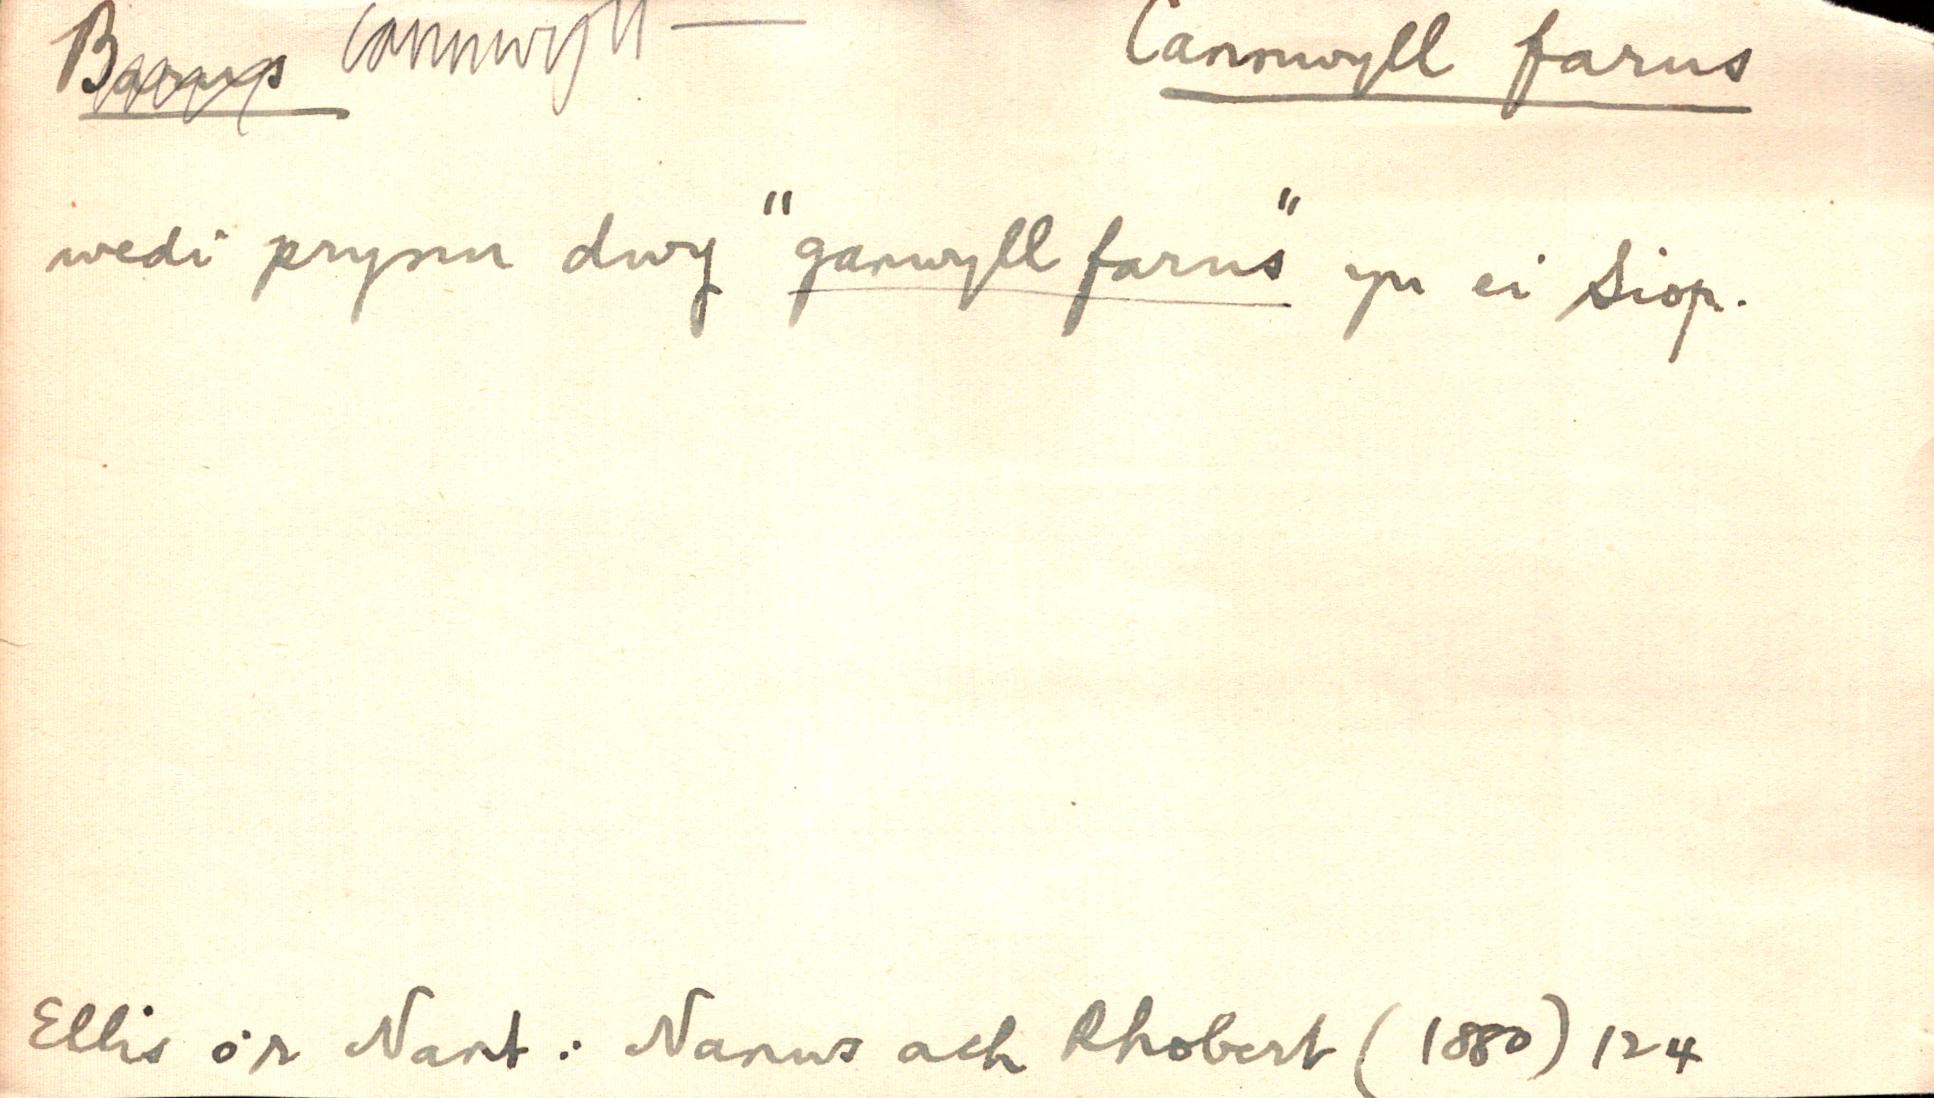 Barus Cannwyll — Cannwyll farus
wedi prynu dwy "ganwyll farus" yn ei Siop.
Ellis o'r Nant : Nanws ach Rhobert (1880) 124